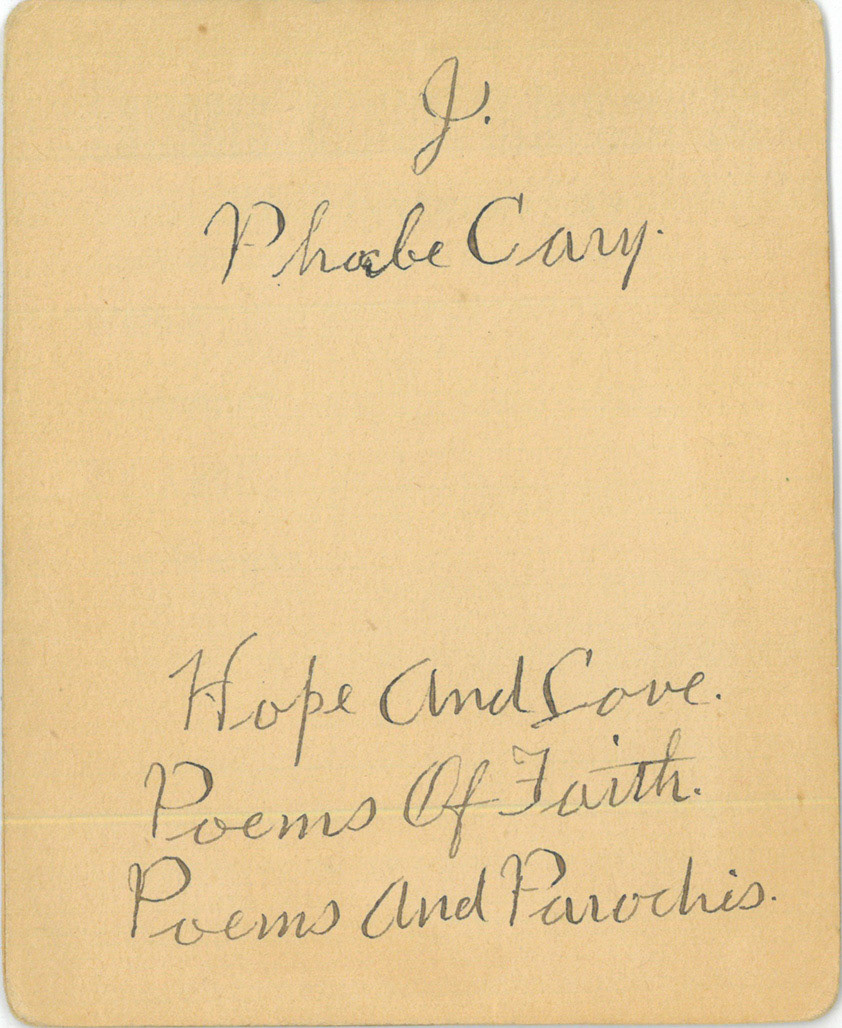 J.
Phoebe Cary.
Hope And Love.
Poems Of Faith.
Poems And Parochis.